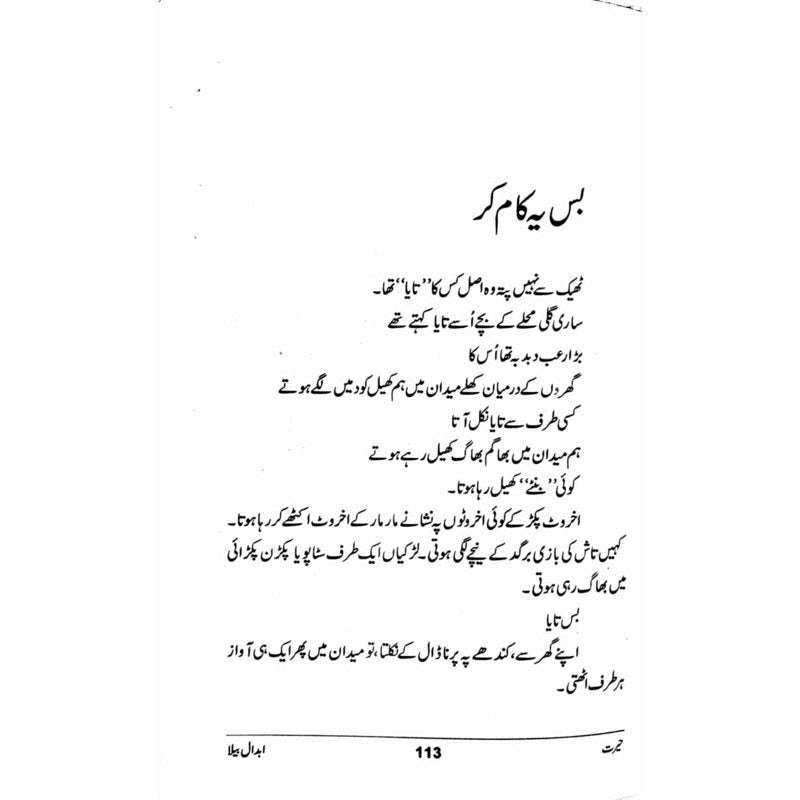 بس یہ کام کر
ٹھیک سے نہیں پتہ وہ اصل کس کا ”تایا“ تھا۔
ساری گلی محلے کے بچے اُسے تایا کہتے تھے
بڑا رعب دبدبہ تھا اُس کا
گھروں کے درمیان کھلے میدان میں ہم کھیل کود میں لگے ہوتے
کسی طرف سے تایا نکل آتا
ہم میدان میں بھاگم بھاگ کھیل رہے ہوتے
کوئی ”بنٹے“ کھیل رہا ہوتا۔
اخروٹ پکڑ کے کوئی اخروٹوں پہ نشانے مار مار کے اخروٹ اکٹھے کر رہا ہوتا۔
کہیں تاش کی بازی برگد کے نیچے لگی ہوتی۔ لڑکیاں ایک طرف سٹاپو یا پکڑن پکڑائی
میں بھاگ رہی ہوتی۔
بس تایا
اپنے گھر سے، کندھے پہ پرنا ڈال کے نکلتا، تو میدان میں پھر ایک ہی آواز
ہر طرف اٹھتی۔
حیرت 113 ابدال بیلا